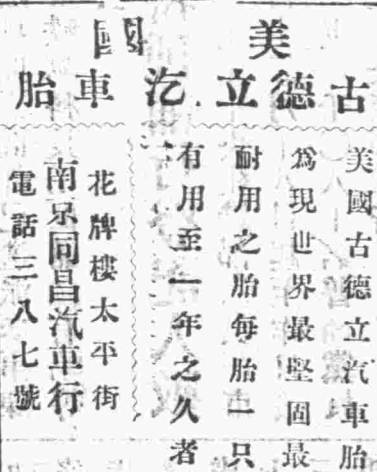 美國
古德立汽車胎
美國古德立汽車胎
為現世界最堅固最
耐用之胎每胎一只
有用至一年之久者
花牌樓太平街
南京同昌汽車行
電話三八七號